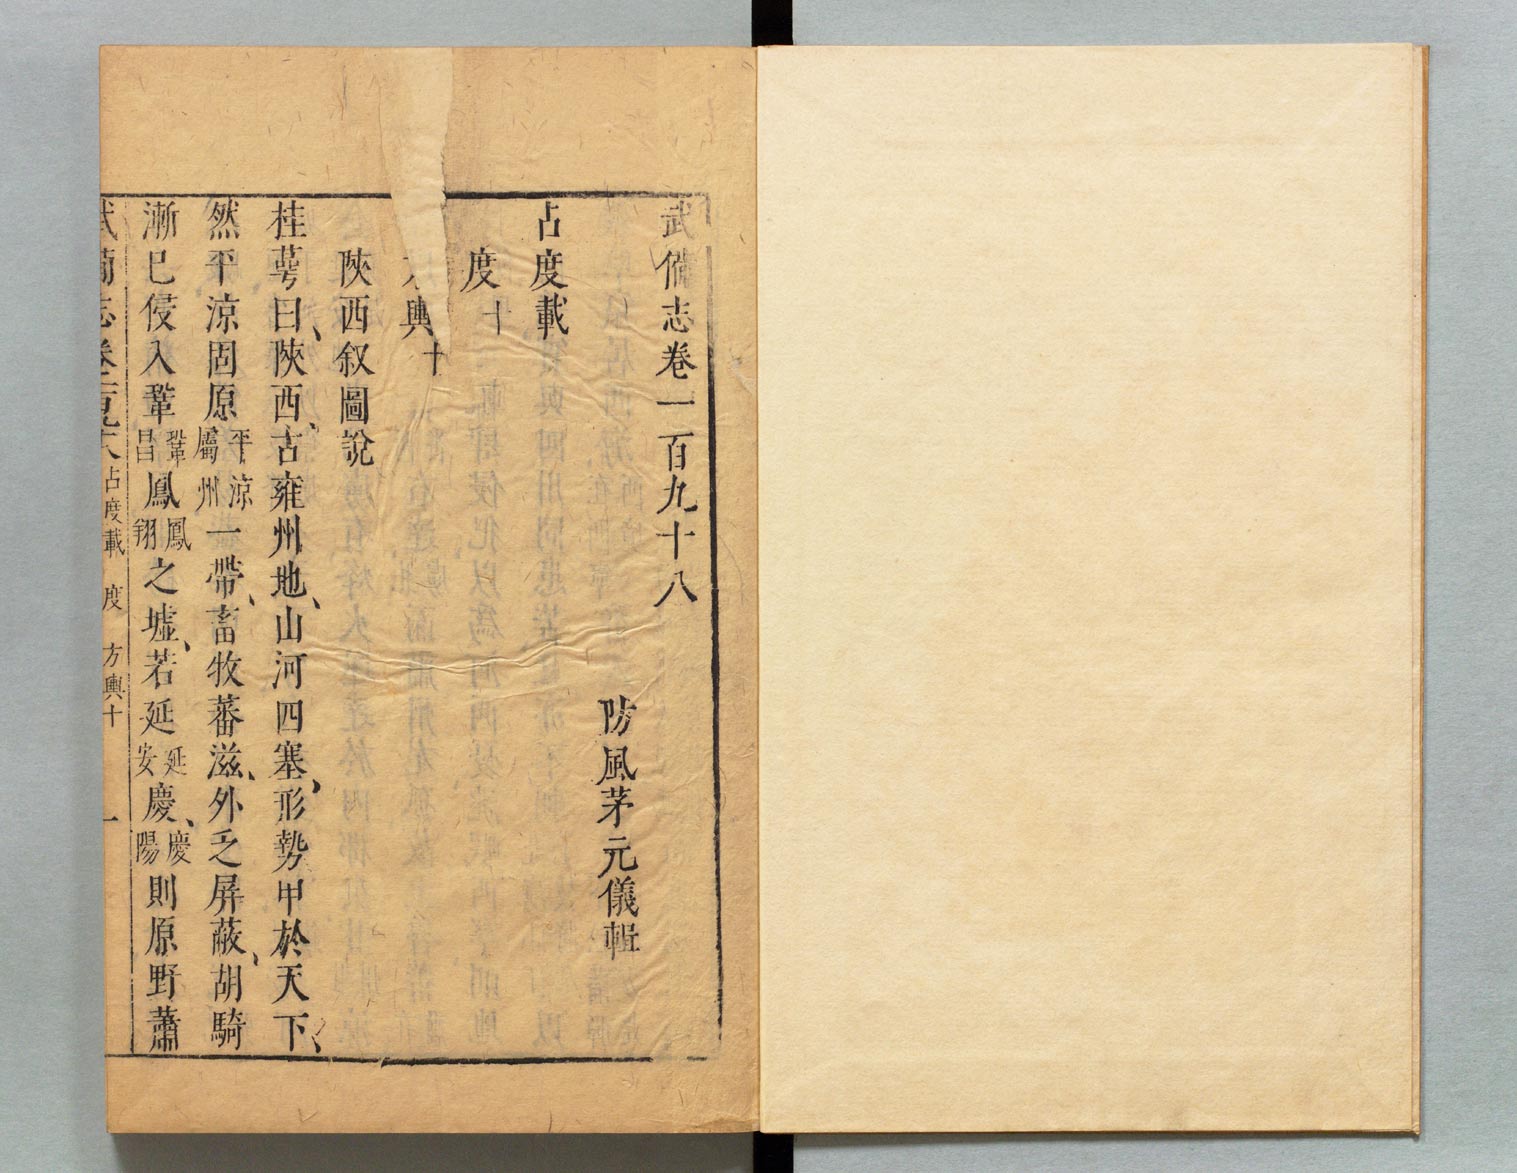 武備志卷一百九十八
防風茅元儀輯
占度載
度十
輿十
陝西叙圖說
桂萼曰、陝西、古雍州地、山河四塞、形勢甲於天下、
然平涼固原、平涼屬州一帶、畜牧蕃滋、外乏屏蔽、胡騎
漸巳侵入鞏鞏昌鳳鳳翔之墟、若延延安慶、慶陽則原野蕭
武備志卷一百九十八 占度載 度 方輿十 一